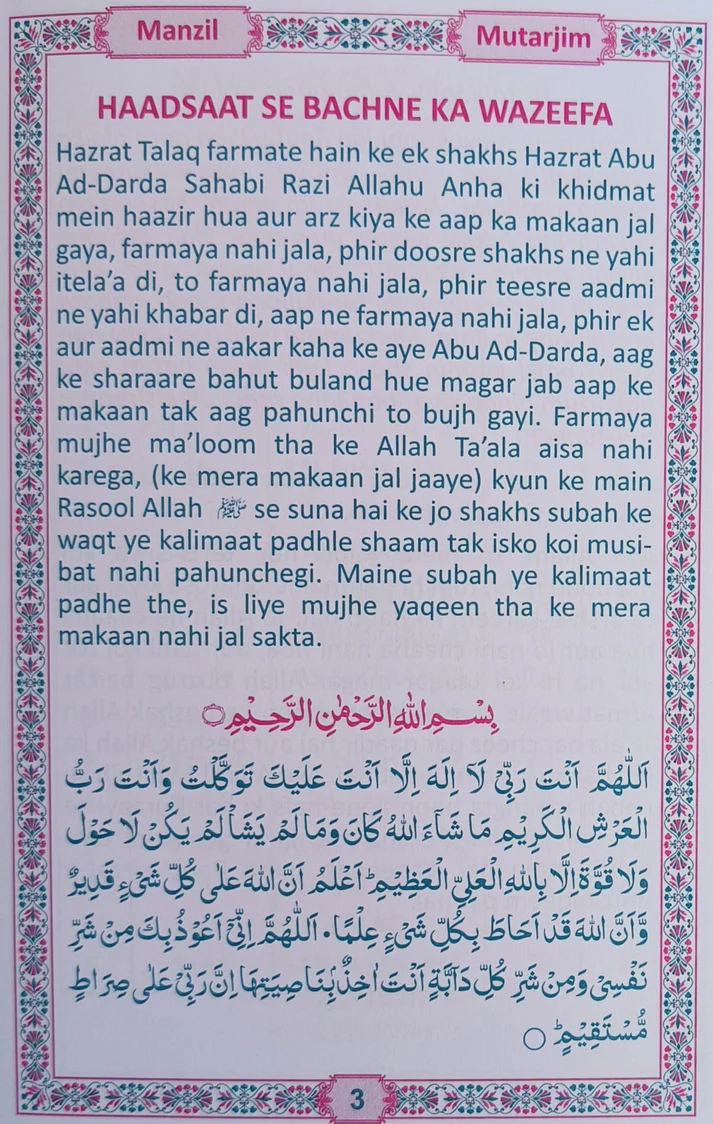 Manzil
Mutarjim
HAADSAAT SE BACHNE KA WAZEEFA
Hazrat Talaq farmate hain ke ek shakhs Hazrat Abu
Ad-Darda Sahabi Razi Allahu Anha ki khidmat
mein haazir hua aur arz kiya ke aap ka makaan jal
gaya, farmaya nahi jala, phir doosre shakhs ne yahi
itela’a di, to farmaya nahi jala, phir teesre aadmi
ne yahi khabar di, aap ne farmaya nahi jala, phir ek
aur aadmi ne aakar kaha ke aye Abu Ad-Darda, aag
ke sharaare bahut buland hue magar jab aap ke
makaan tak aag pahunchi to bujh gayi. Farmaya
mujhe ma’loom tha ke Allah Ta’ala aisa nahi
karega, (ke mera makaan jal jaaye) kyun ke main
Rasool Allah ﷺ se suna hai ke jo shakhs subah ke
waqt ye kalimaat padhle shaam tak isko koi musi-
bat nahi pahunchegi. Maine subah ye kalimaat
padhe the, is liye mujhe yaqeen tha ke mera
makaan nahi jal sakta.
بِسْمِ اللهِ الرَّحْمٰنِ الرَّحِيْمِ ۝
اَللّٰهُمَّ اَنْتَ رَبِّىْ لَآ اِلٰهَ اِلَّا اَنْتَ عَلَيْكَ تَوَكَّلْتُ وَاَنْتَ رَبُّ
الْعَرْشِ الْكَرِيْمِ مَا شَآءَ اللهُ كَانَ وَمَا لَمْ يَشَاْ لَمْ يَكُنْ لَا حَوْلَ
وَلَا قُوَّةَ اِلَّا بِاللهِ الْعَلِىِّ الْعَظِيْمِ ؕ اَعْلَمُ اَنَّ اللهَ عَلٰى كُلِّ شَىْءٍ قَدِيْرٌ
وَّاَنَّ اللهَ قَدْ اَحَاطَ بِكُلِّ شَىْءٍ عِلْمًا۔ اَللّٰهُمَّ اِنِّىْ اَعُوْذُ بِكَ مِنْ شَرِّ
نَفْسِىْ وَمِنْ شَرِّ كُلِّ دَآبَّةٍ اَنْتَ اٰخِذٌۢ بِنَاصِيَتِهَا اِنَّ رَبِّىْ عَلٰى صِرَاطٍ
مُّسْتَقِيْمٍ ؕ ۝
3